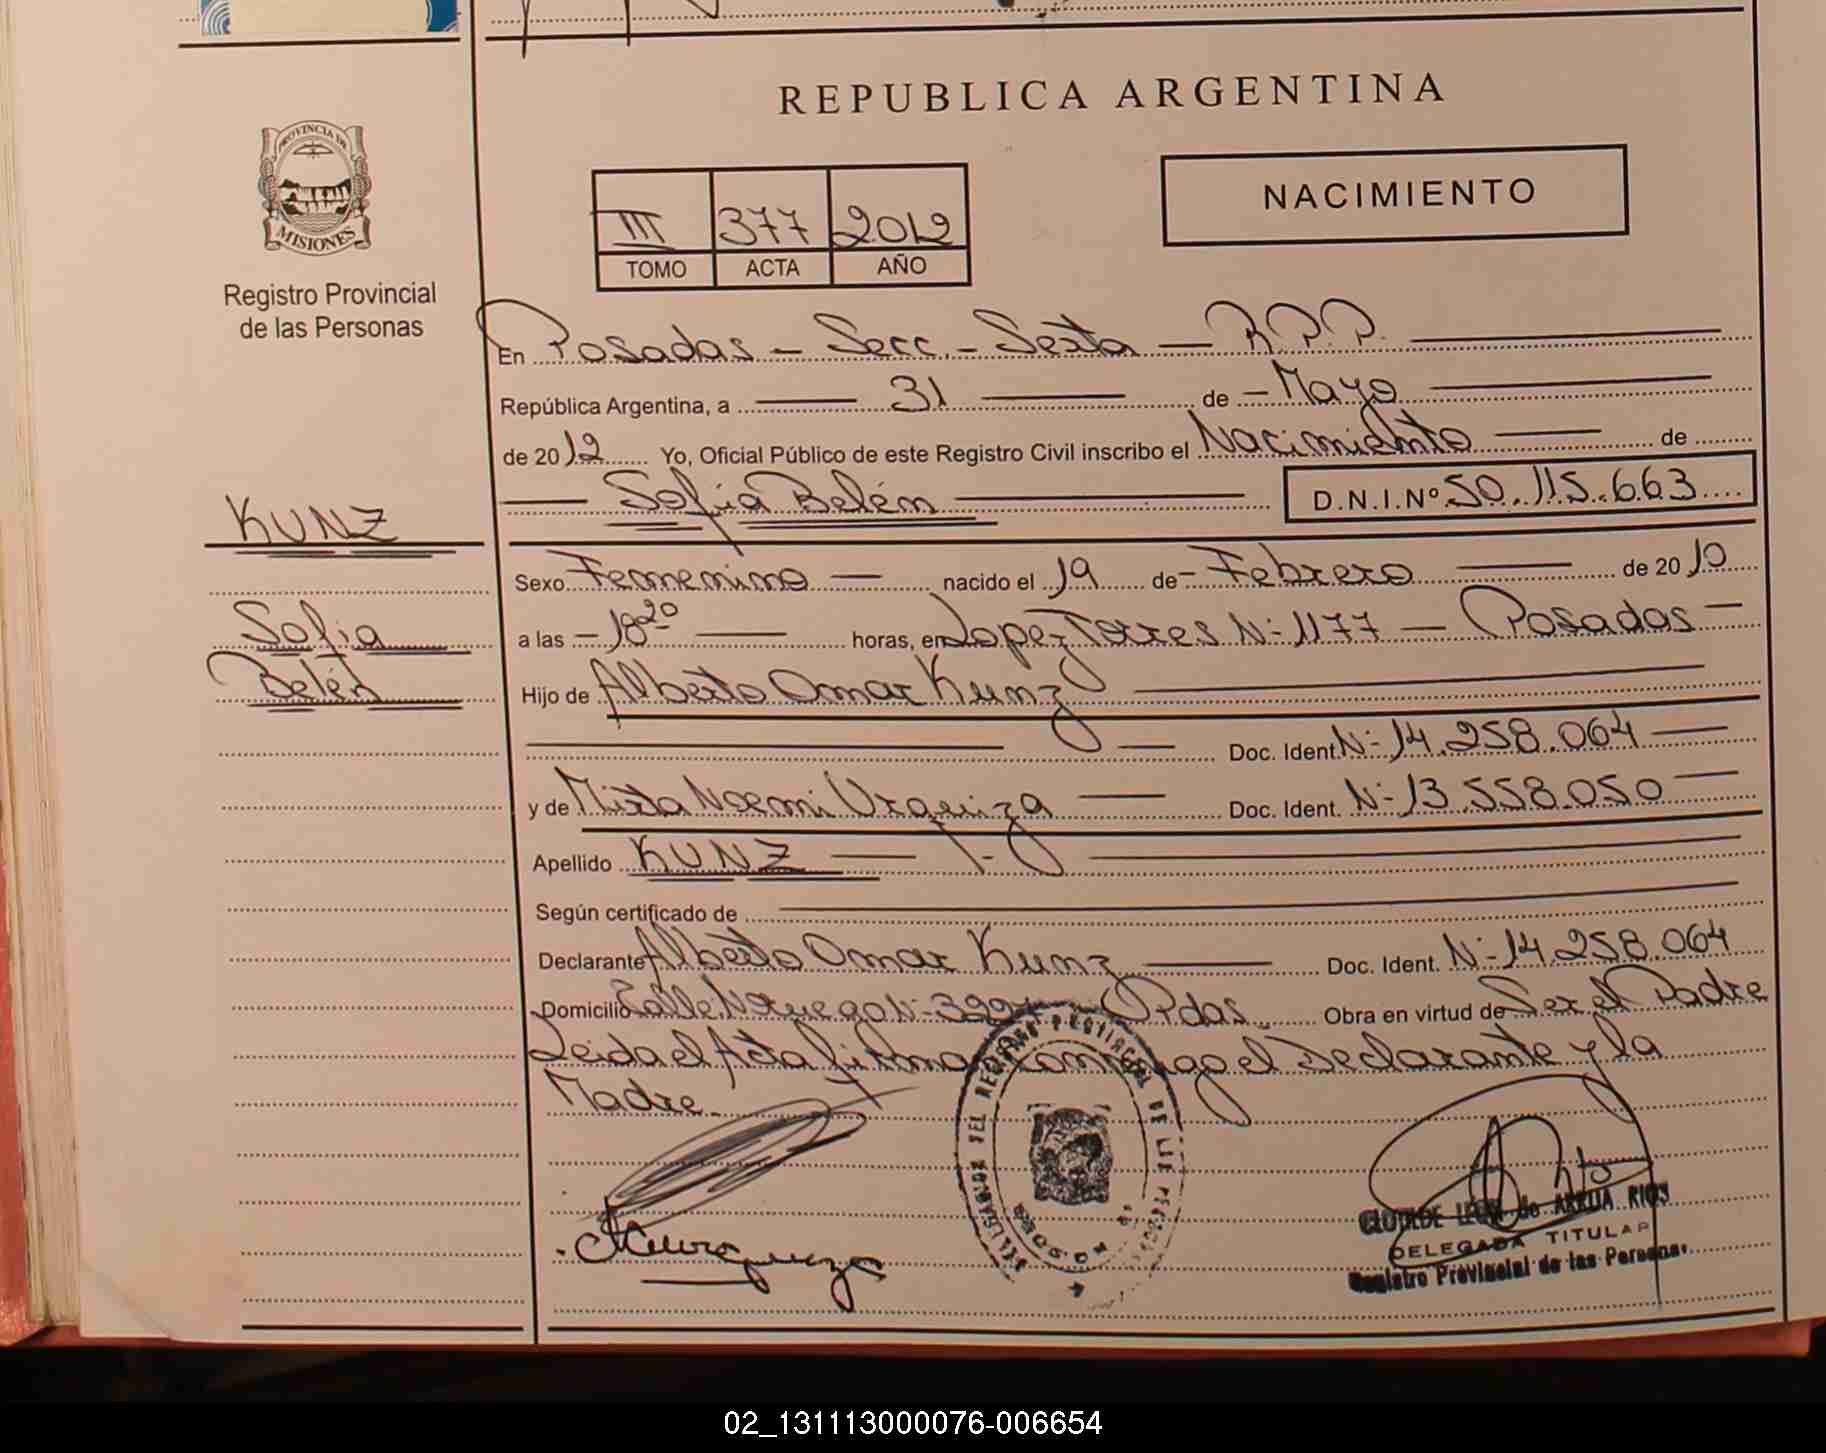 REPUBLICA ARGENTINA
PROVINCIA DE
MISIONES
Registro Provincial
de las Personas
III 377 2012
TOMO ACTA AÑO
NACIMIENTO
En Posadas - Secc. - Sexta - R.P.P.
República Argentina, a 31 de - Mayo
de 2012 Yo, Oficial Público de este Registro Civil inscribo el Nacimiento de
Sofía Belén D.N.I.Nº 50.115.663
KUNZ
Sofia
Belén
Sexo Femenino nacido el 19 de - Febrero de 2010
a las - 18 20 horas, en Lopez Torres N- 1177 - Posadas -
Hijo de Alberto Omar Kunz
Doc. Ident. N- 14.258.064
y de Mirta Noemi Urquiza Doc. Ident. N- 13.558.050
Apellido KUNZ
Según certificado de
Declarante Alberto Omar Kunz Doc. Ident. N- 14.258.064
Domicilio N- Pdas Obra en virtud de Ser el Padre
Leida el Acta firma conmigo el Declarante y la
Madre
REGISTRO PROVINCIAL DE LAS
CLOTILDE de ARRUA RIOS
DELEGADA TITULAR
Registro Provincial de las Personas
02_131113000076-006654